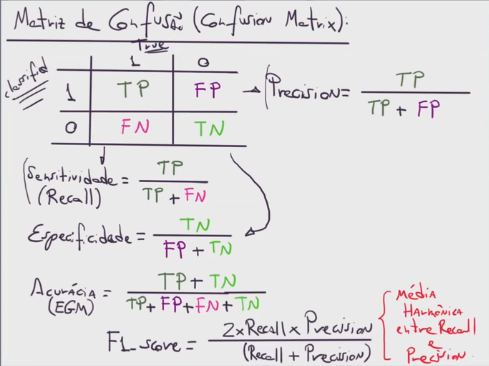 Matriz de Confusão (Confusion Matrix):
True
1 0
classified
1 TP FP → Precision = TP / TP + FP
0 FN TN
Sensitividade = TP / TP + FN
(Recall)
Especificidade = TN / FP + TN
Acurácia = TP + TN / TP + FP + FN + TN
(EGM)
F1_score = 2 x Recall x Precision / (Recall + Precision)
Média
Harmônica
entre Recall
e
Precision